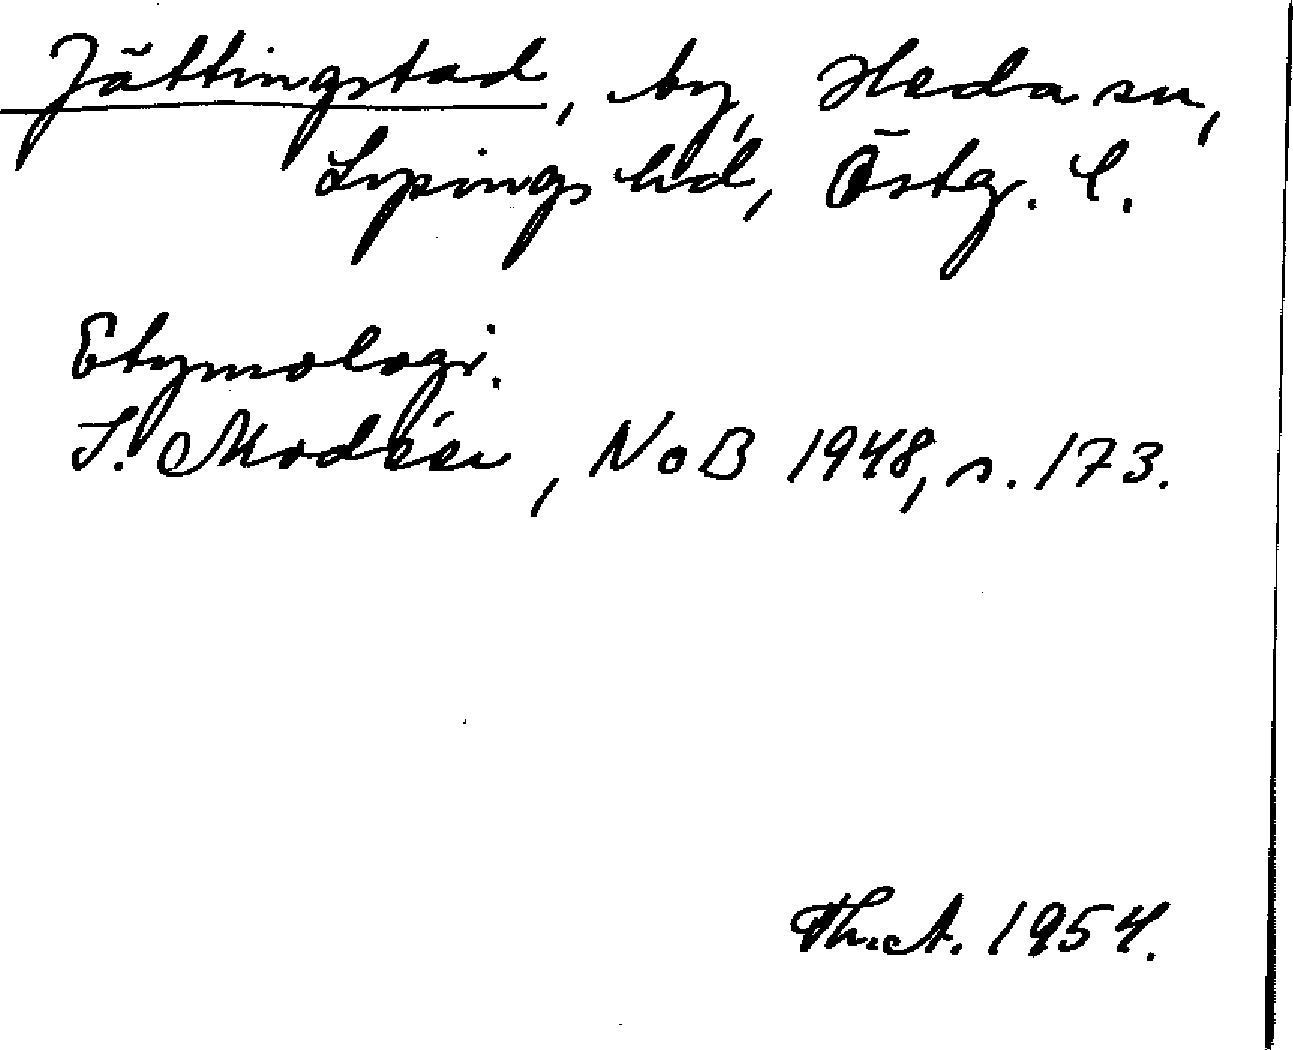 Jättingstad, by, Heda sn,
Lysings hd, Östg. l.
Etymologi.
I. Modéer, NoB 1948, s. 173.
Th. A. 1954.